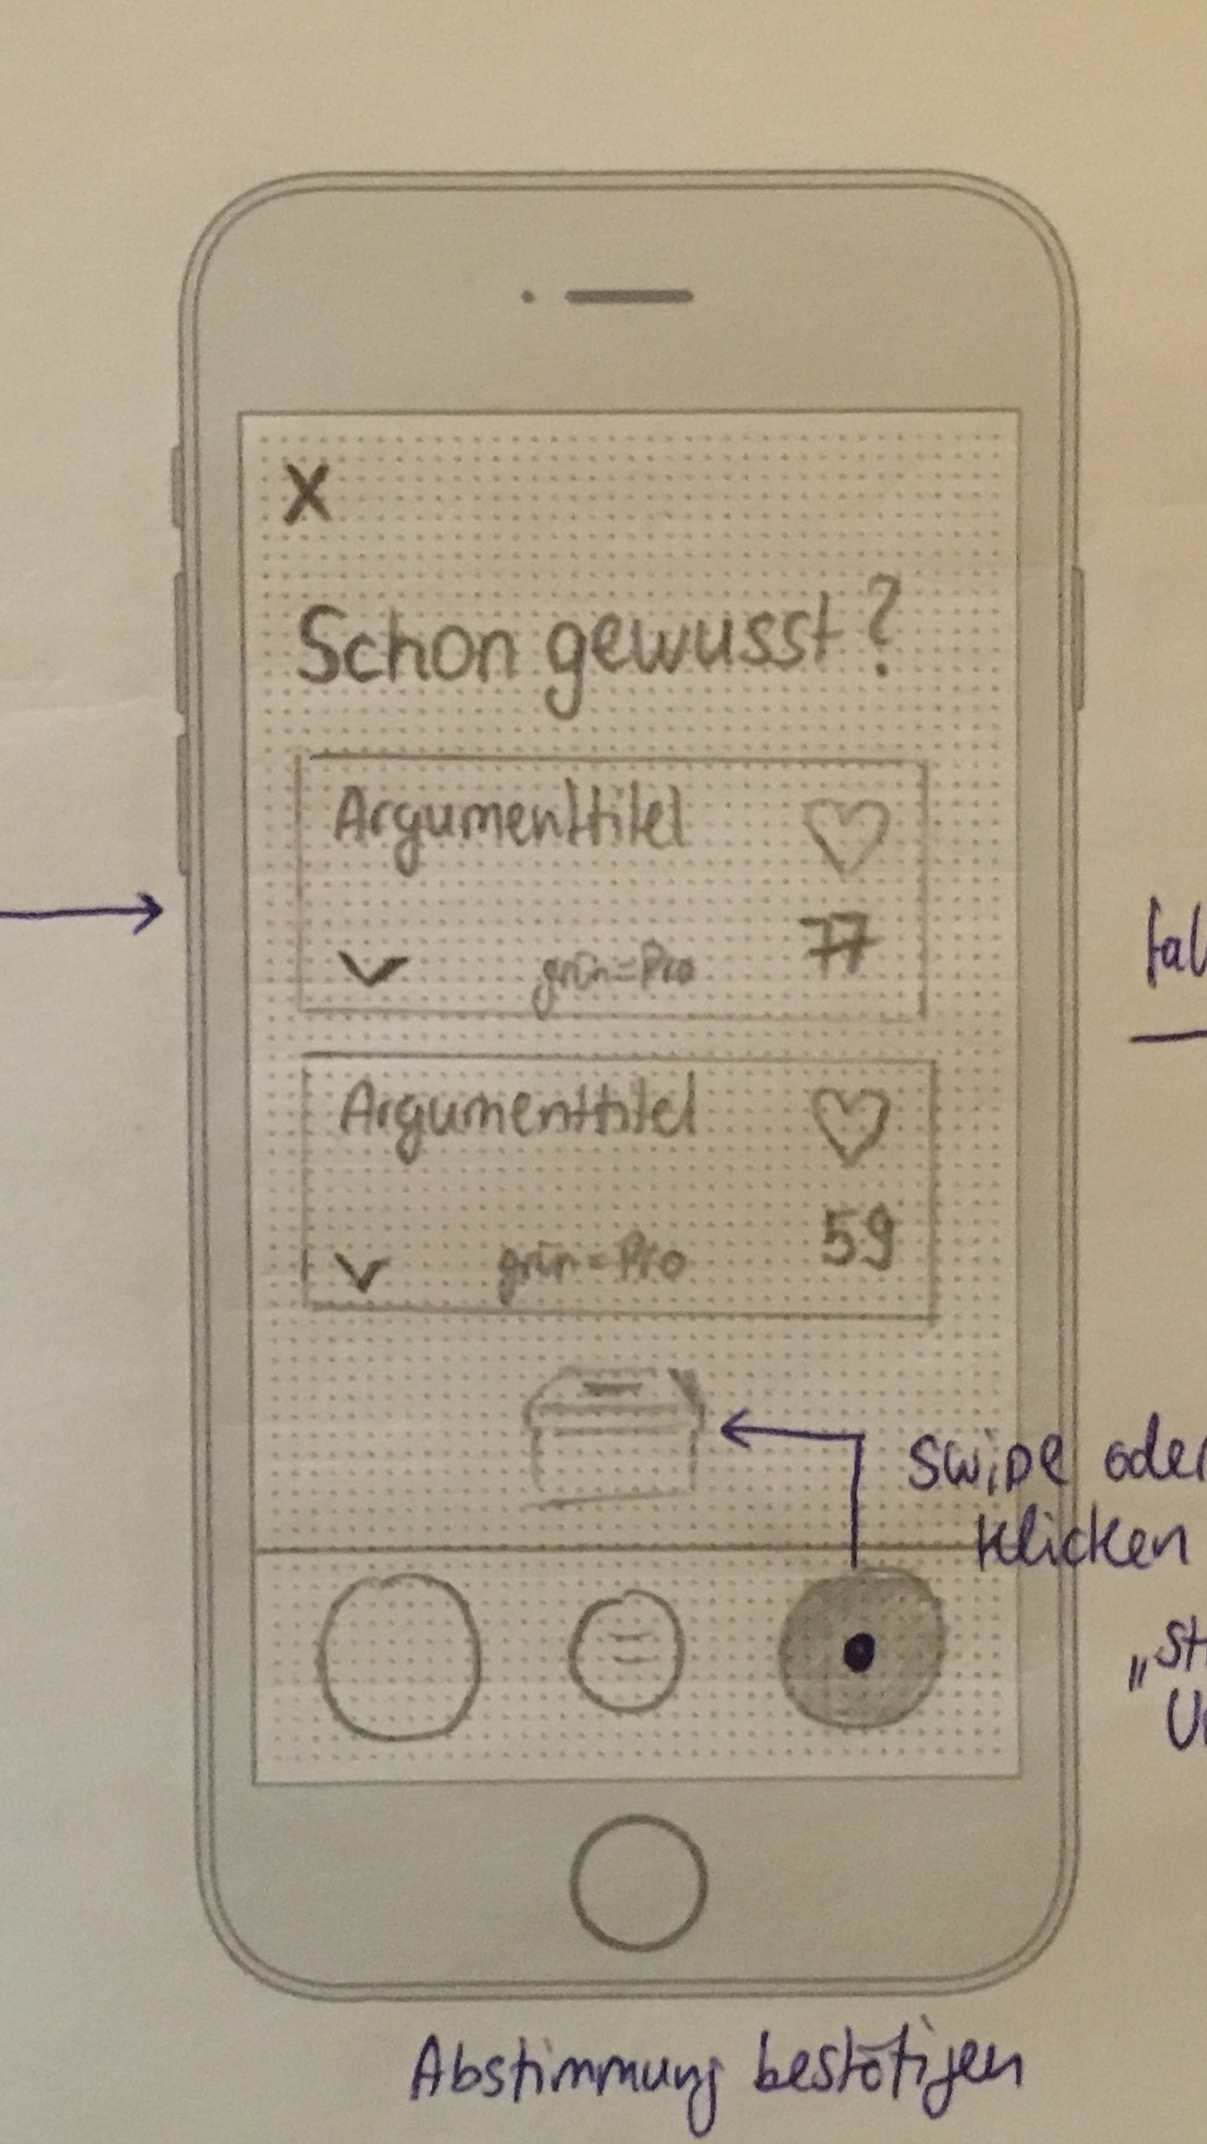 X
Schon gewusst?
Argumenttitel
77
grün=Pro
Argumenttitel
59
grün=Pro
swipe oder
klicken
Abstimmung bestätigen